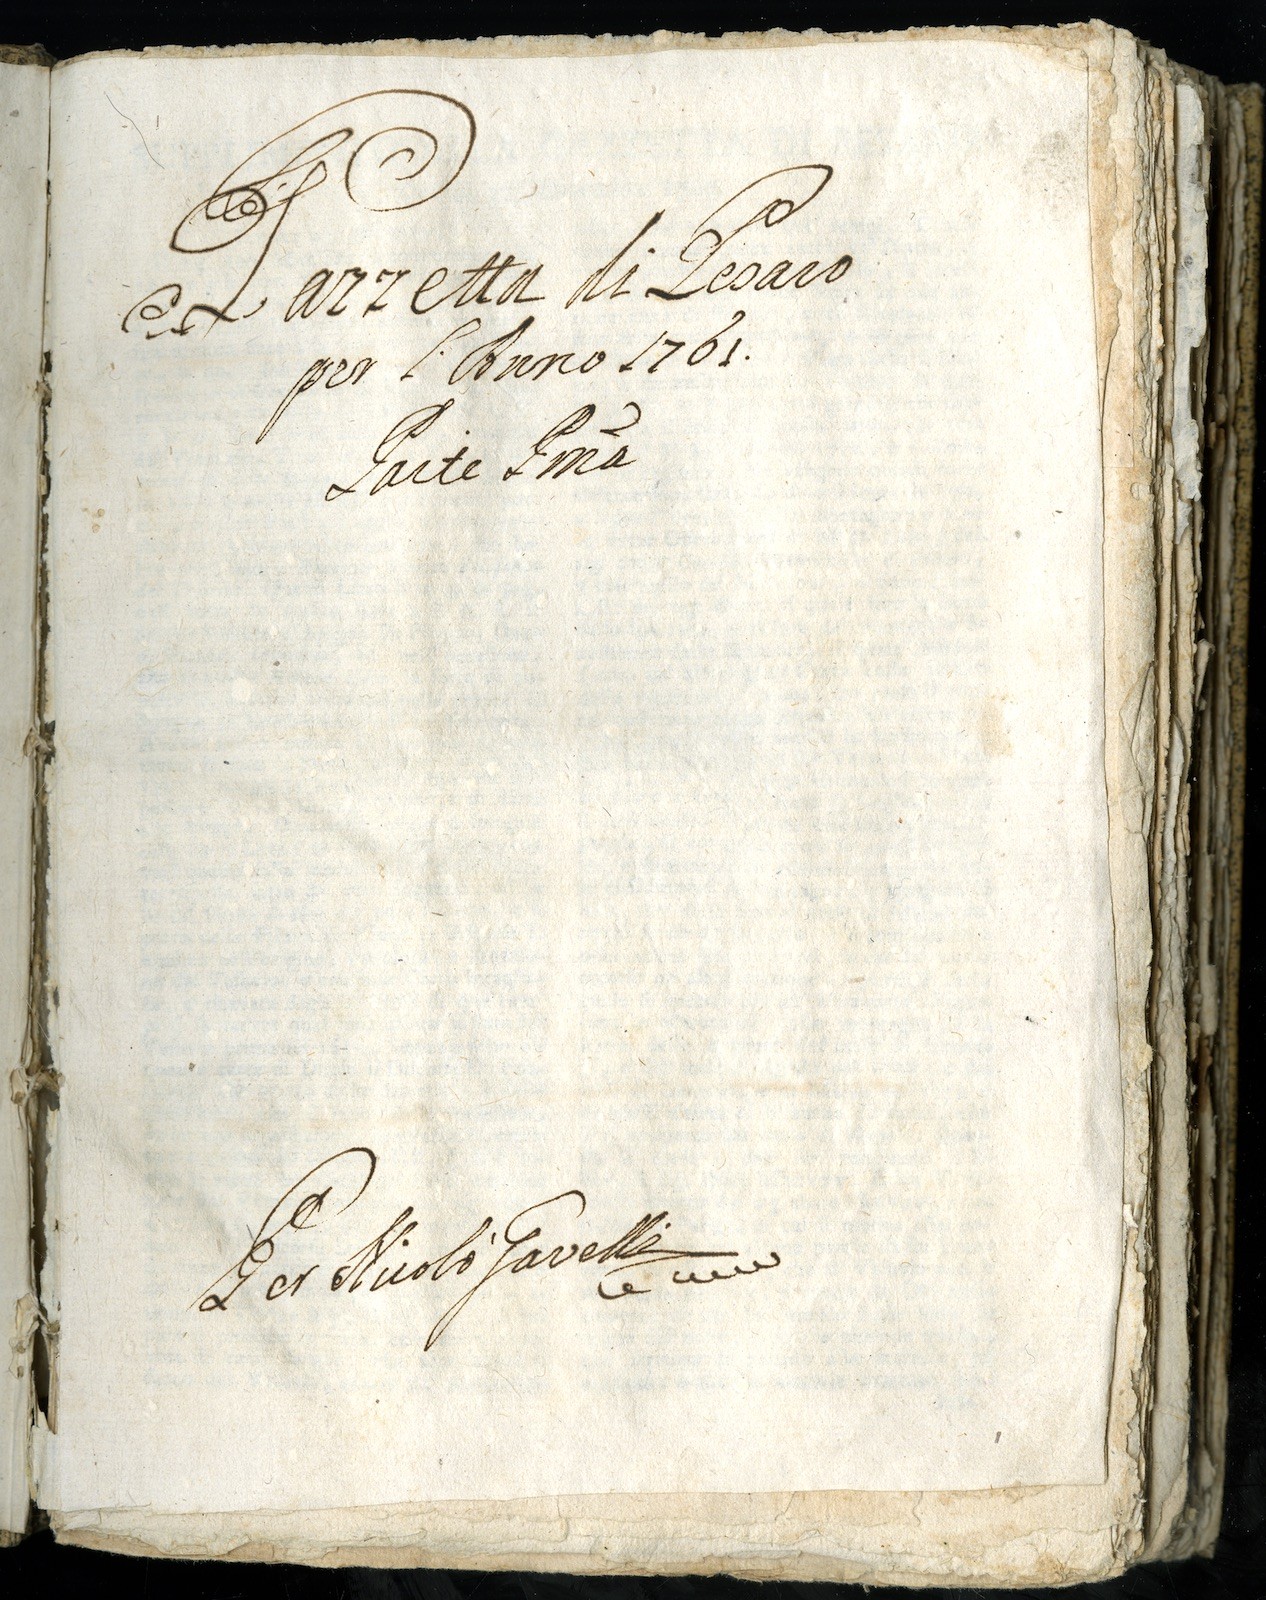 Gazzetta di Pesaro
per l'Anno 1761.
Parte Pma
Per Nicolò Gavelli